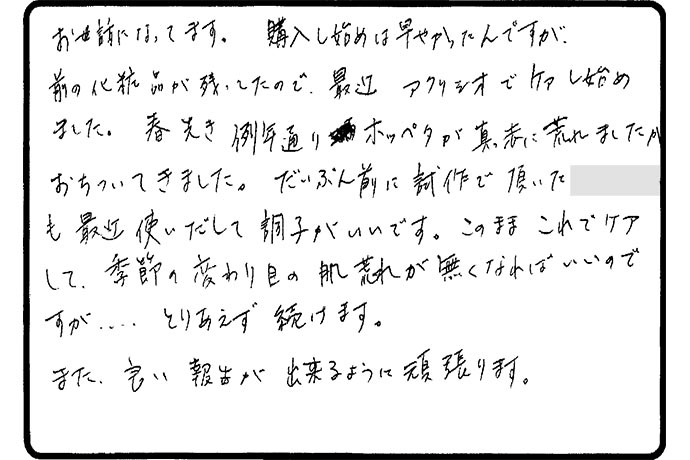 お世話になってます。 購入し始めは早やかったんですが、
前の化粧品が残ってたので、最近 アクリシオでケアし始め
ました。 春先き 例年通り ホッペタが真っ赤に荒れましたが
おちついてきました。 だいぶん前に試作で頂いた
も最近使いだして調子がいいです。このままこれでケア
して、季節の変わり目の肌荒れが無くなればいいので
すが‥‥ とりあえず続けます。
また、良い報告が出来るように頑張ります。